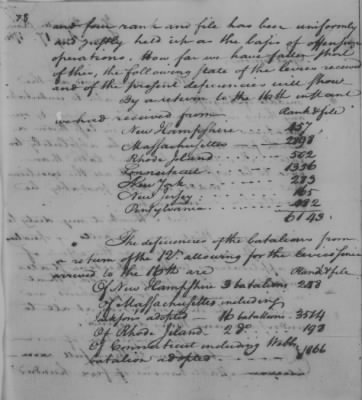 78
and four rank and file has been uniformly
and justly held up as the basis of offensive
operations. How far we have fallen short
of this, the following state of the levies received
and of the present deficiencies will show
By a return to the 16th instant
we had received from Rank & file
New Hampshire 457
Massachusettes 2898
Rhode Island 502
Connecticut 1356
New York 283
New Jersey 165
Pensylvania 482
6143.
The deficiencies of the batalions from
a return of the 12th allowing for the levies since
arrived to the 16th are Rank & file
Of New Hampshire 3 batalions 288
Of Massachusettes including
Jacksons adopted 16 batallions 3564
Of Rhode Island 2 do. 198
Of Connecticut including Webbs
batalion adopted 1866